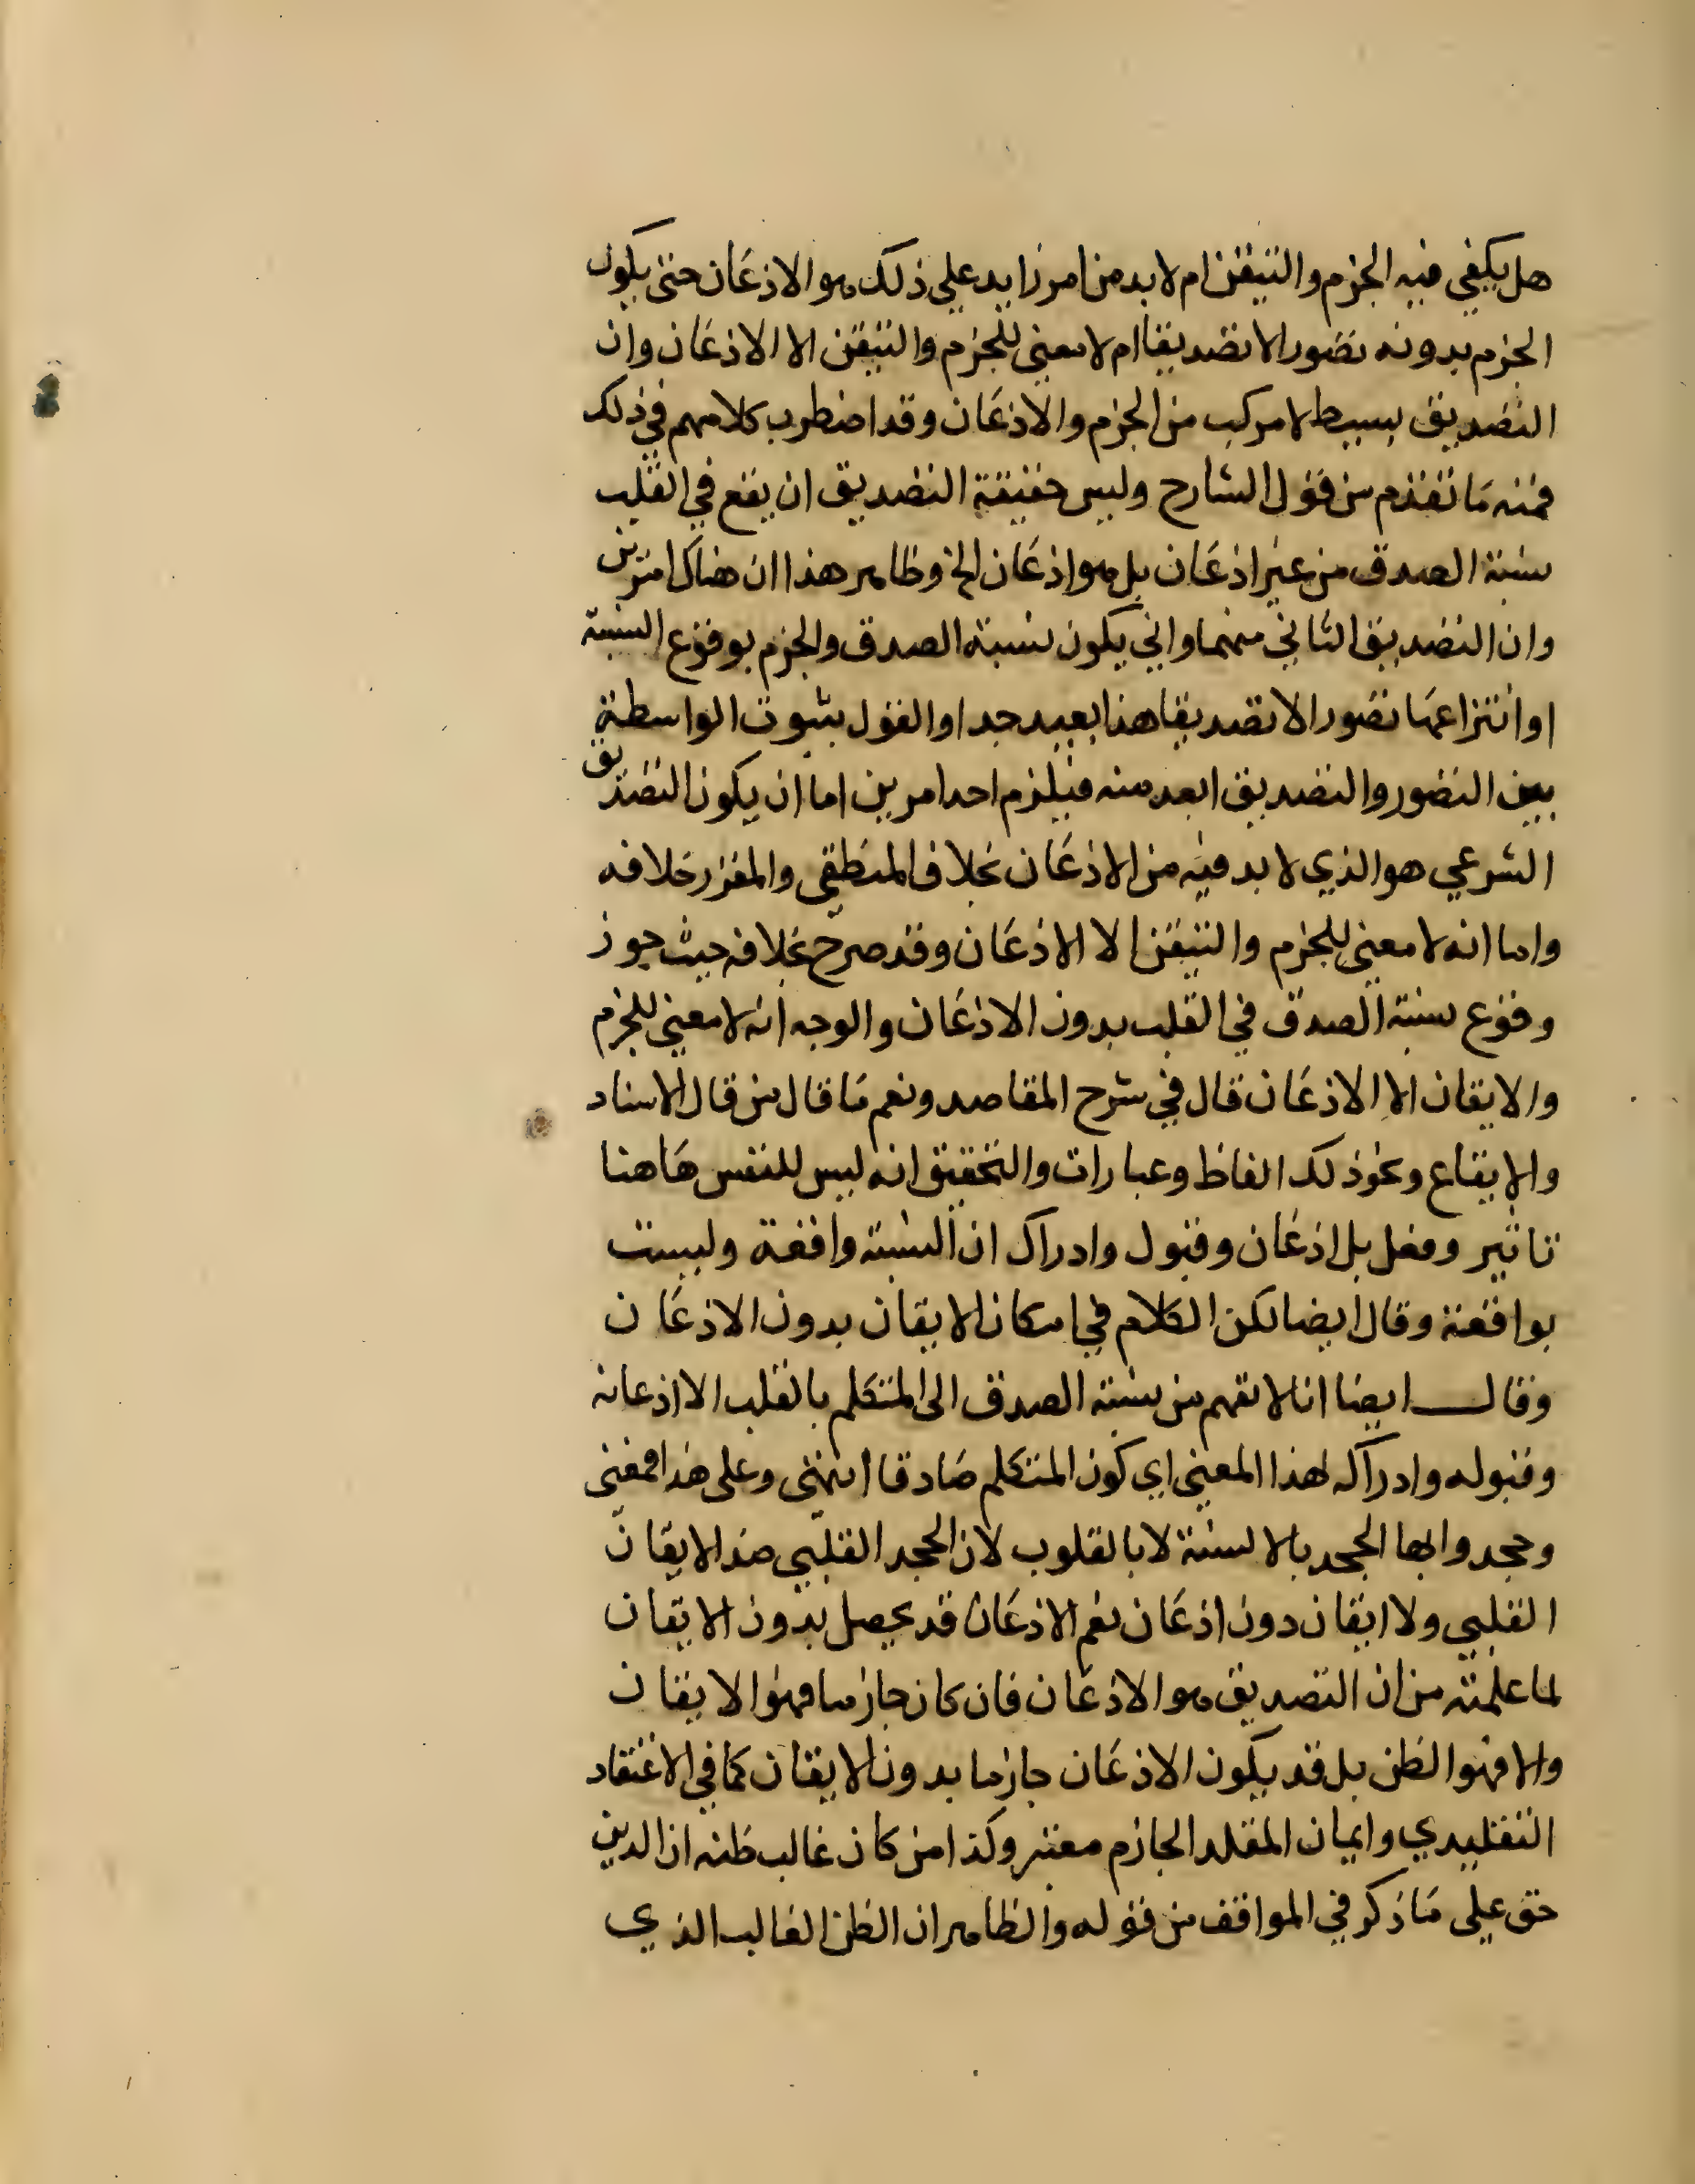 هل يكفي فيه الجزم والتيقن ام لا بد من امر زايد علي ذلك هو الاذعان حتى يكون
الجزم بدونه تصورا لا تصديقا ام لا معني للجزم والتيقن الا الاذعان وان
التصديق بسيط لا مركب من الجزم والاذعان وقد اضطرب كلامهم في ذلك
فمنه ما تقدم من قول الشارح وليس حقيقة التصديق ان يقع في القلب
نسبة الصدق من غير اذعان بل هو اذعان الخ وظاهر هذا ان هناك امرين
وان التصديق الثاني منهما واني يكون نسبة الصدق والجزم بوقوع النسبة
او انتزاعها تصورا لا تصديقا هذا بعيد جدا والقول بثبوت الواسطة
بين التصور والتصديق ابعد منه فيلزم احد امرين اما ان يكون التصديق
الشرعي هو الذي لا بد فيه من الاذعان بخلاف المنطقي والمقرر خلافه
واما انه لا معني للجزم والتيقن الا الاذعان وقد صرح بخلافه حيث جوز
وقوع نسبة الصدق في القلب بدون الاذعان والوجه انه لا معني للجزم
والايقان الا الاذعان قال في شرح المقاصد ونعم ما قال من قال الاسناد
والايقاع ونحو ذلك الفاظ وعبارات والتحقيق انه ليس للنفس هاهنا
تاثير وفعل بل اذعان وقبول وادراك ان النسبة واقعة وليست
بواقعة وقال ايضا لكن الكلام في امكان الايقان بدون الاذعان
وقال ايضا انا لا نفهم من نسبة الصدق الى المتكلم بالقلب الا اذعانه
وقبوله وادراكه لهذا المعني اي كون المتكلم صادقا انتهى وعلى هذا فمعنى
وجحدوا بها الجحد بالالسنة لا بالقلوب لان الجحد القلبي ضد الايقان
القلبي ولا ايقان دون اذعان نعم الاذعان قد يحصل بدون الايقان
لما علمته من ان التصديق هو الاذعان فان كان جازما فهو الايقان
والا فهو الظن بل قد يكون الاذعان جازما بدون الايقان كما في الاعتقاد
التقليدي وايمان المقلد الجازم معتبر وكذا من كان غالب ظنه ان الدين
حق علي ما ذكر في المواقف من قوله والظاهر ان الظن الغالب الذي